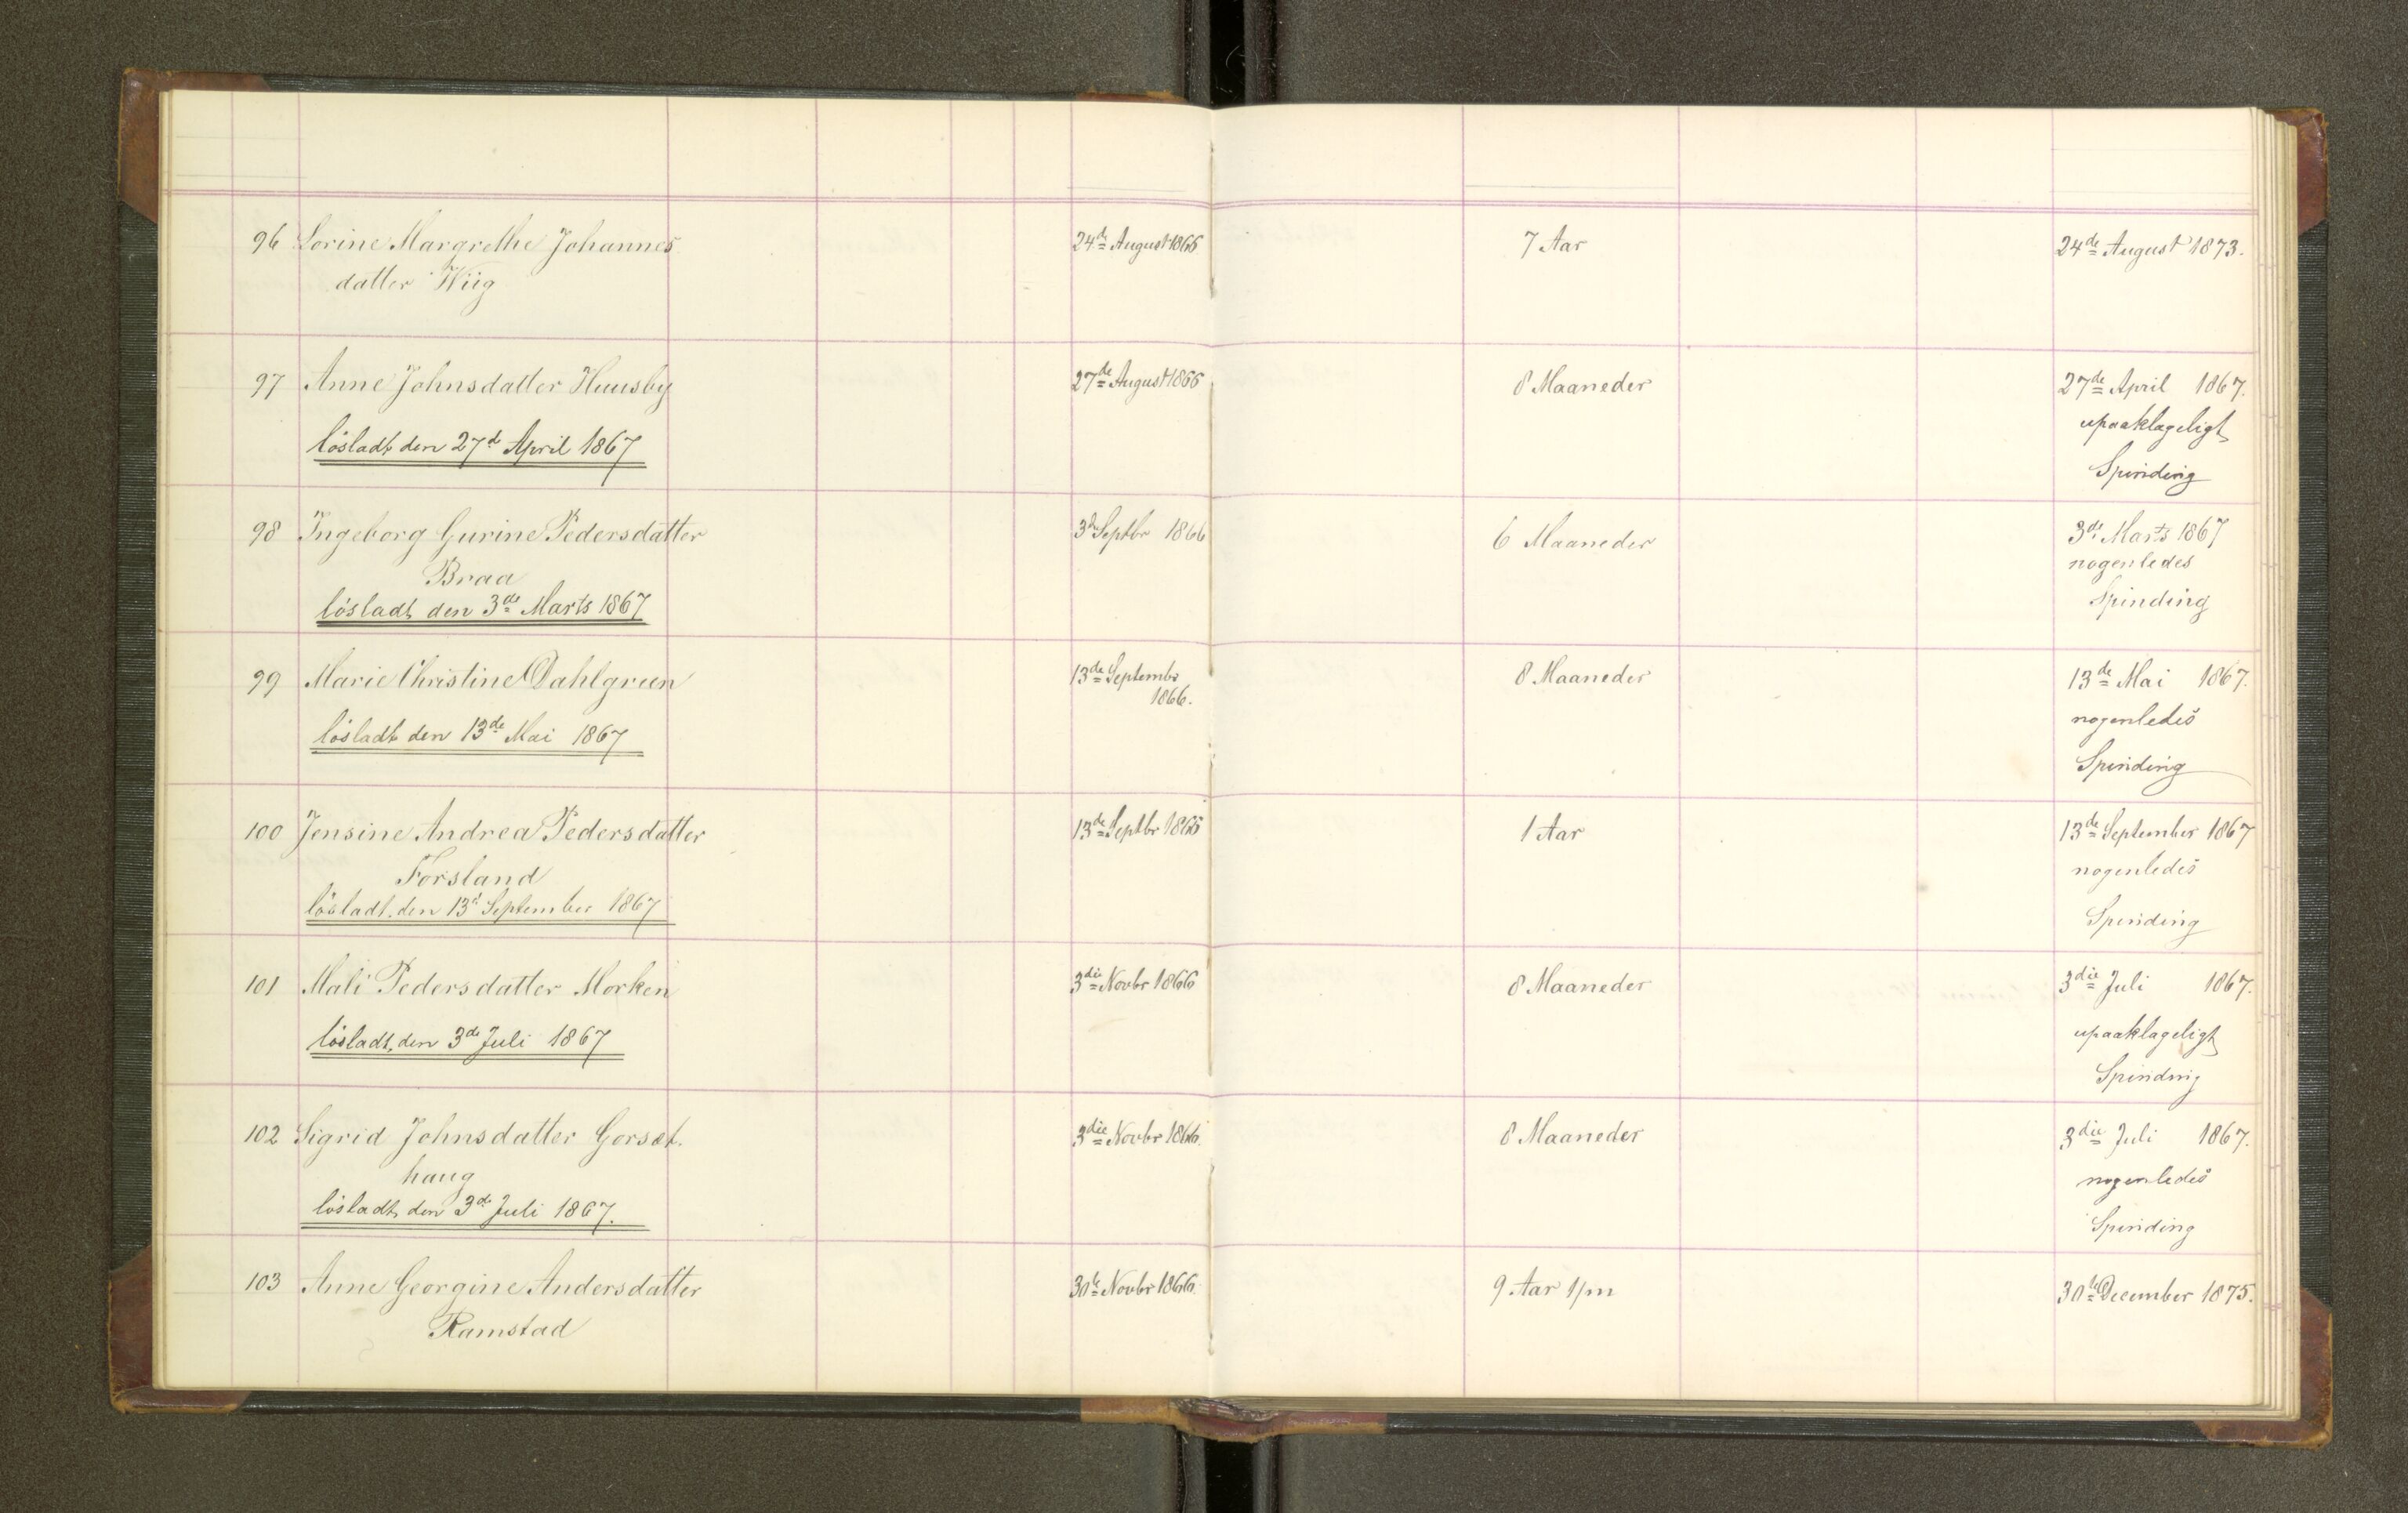 96 Lorine Margrethe Johannes 24de August 1866 7 Aar 24de August 1873.
datter Wiig
97 Anne Johnsdatter Huusby 27de August 1866 8 Maaneder 27de April 1867.
upaaklageligt
lösladt den 27de April 1867
Spinding
98 Ingeborg Gurine Pedersdatter 3de Septbr 1866 6 Maaneder 3de Marts 1867
Braa nogenledes
lösladt den 3de Marts 1867 Spinding
99 Marie Christine Dahlgreen 13de Septembr 8 Maaneder 13de Mai 1867.
1866.
lösladt den 13de Mai 1867 nogenledes
Spinding
100 Jensine Andrea Pedersdatter 13de Septbr 1866 1 Aar 13de September 1867
Forsland nogenledes
lösladt den 13de September 1867 Spinding
101 Mali Pedersdatter Morken 3die Novbr 1866 8 Maaneder 3die Juli 1867.
lösladt den 3de Juli 1867 upaaklageligt
Spinding
102 Sigrid Johnsdatter Gorset. 3die Novbr 1866. 8 Maaneder 3die Juli 1867.
haug nogenledes
lösladt den 3de Juli 1867. Spinding
103 Anne Georgine Andersdatter 30te Novbr 1866. 9 Aar 1/m 30te December 1875.
Ramstad